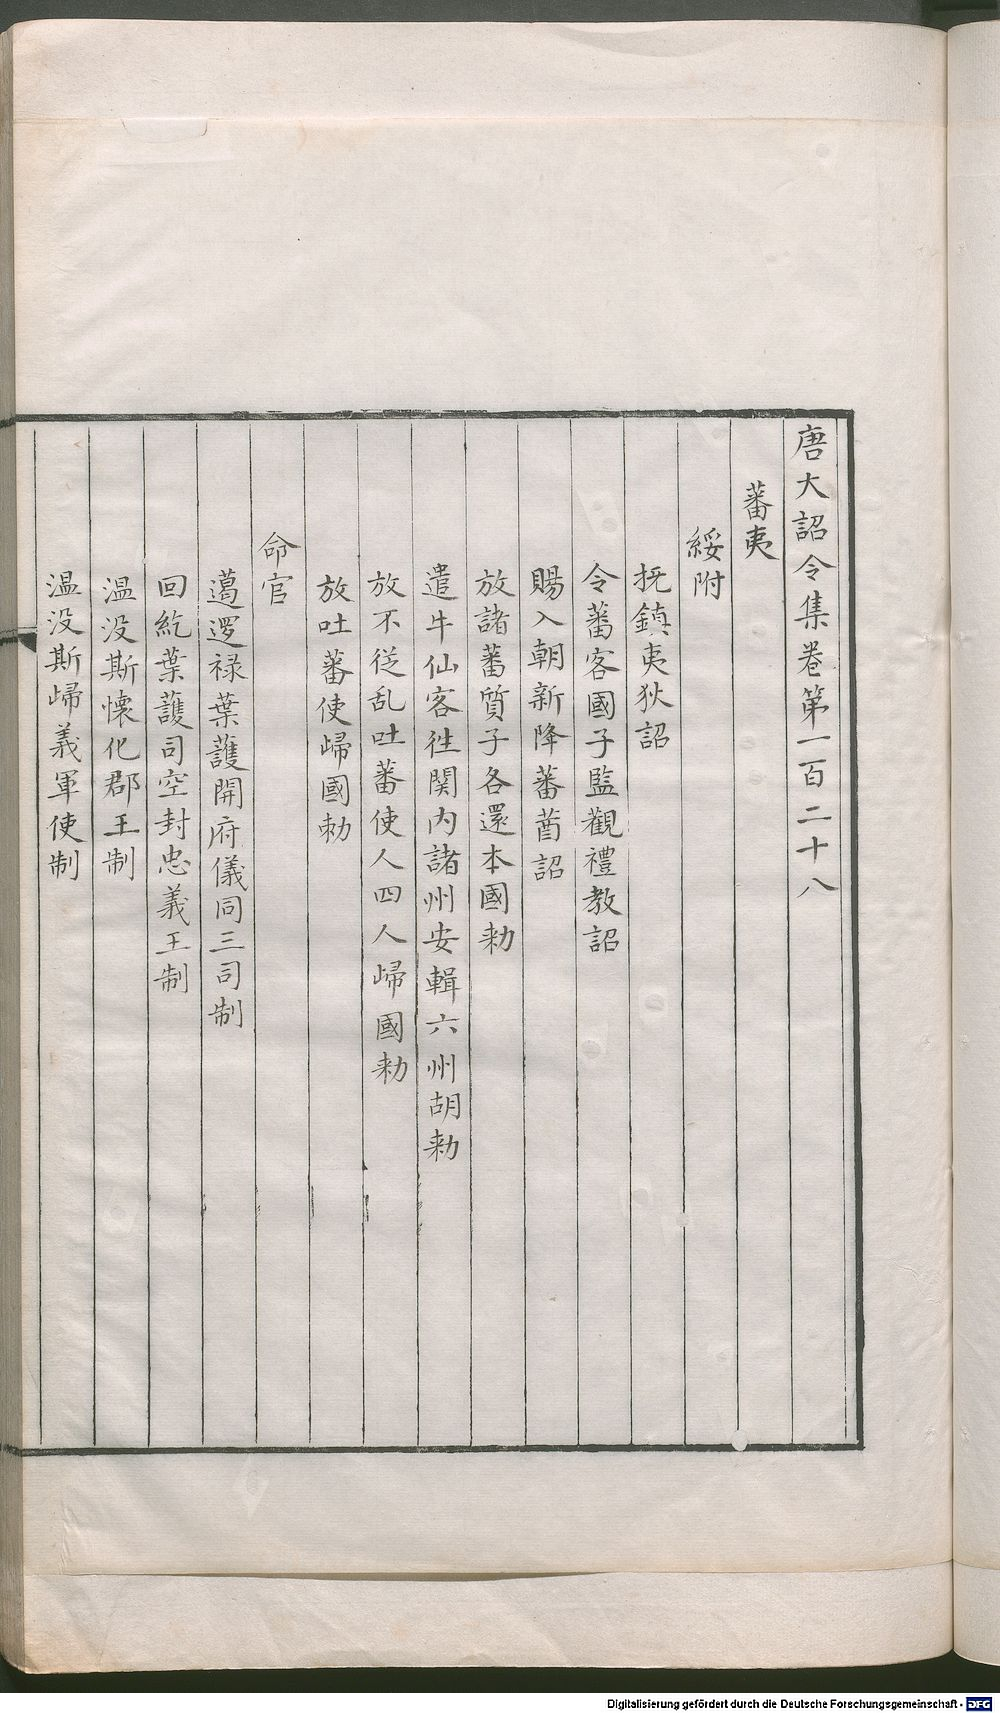 唐大詔令集卷第一百二十八
蕃夷
綏附
抚鎮夷狄詔
令蕃客國子監觀禮教詔
賜入朝新降蕃酋詔
放諸蕃質子各還本國勑
遣牛仙客徃関内諸州安輯六州胡勑
放不従乱吐蕃使人四人歸國勑
放吐蕃使歸國勑
命官
葛逻禄葉護開府儀同三司制
回紇葉護司空封忠義王制
温没斯懷化郡王制
温没斯歸義軍使制
Digitalisierung gefördert durch die Deutsche Forschungsgemeinschaft - DFG